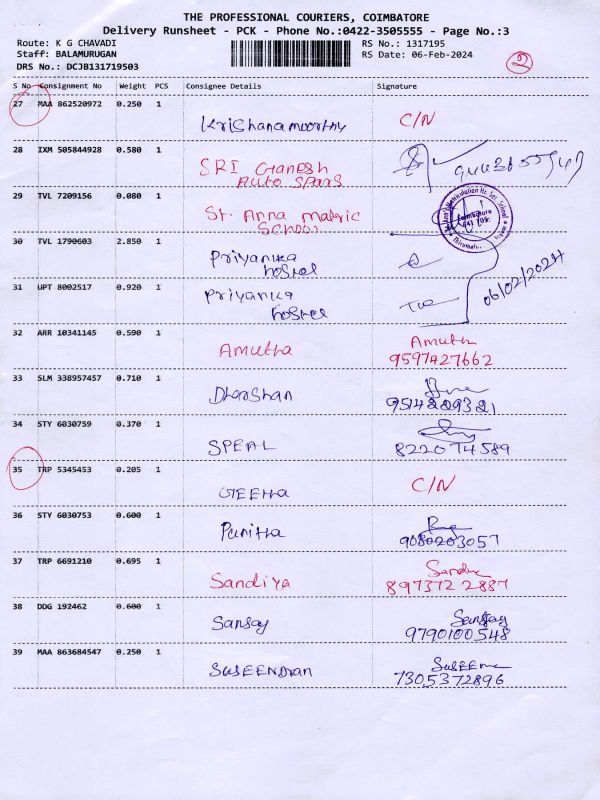 THE PROFESSIONAL COURIERS, COIMBATORE
Delivery Runsheet - PCK - Phone No.:0422-3505555 - Page No.:3
Route: K G CHAVADI RS No.: 1317195
Staff: BALAMURUGAN RS Date: 06-Feb-2024
DRS No.: DCJB131719503
2
S No Consignment No Weight PCS Consignee Details Signature
27 MAA 862520972 0.250 1
Krishanamoorthy C/N
28 IXM 505844928 0.580 1
SRI Ganesh
Auto Spars
29 TVL 7209156 0.080 1
St. Anna matric
School
30 TVL 1790603 2.850 1
Priyanka
hostel
31 UPT 8002517 0.920 1
Priyanka
hostel
06/02/2024
32 ARR 10341145 0.590 1
Amutha Amuth
9597427662
33 SLM 338957457 0.710 1
Dharshan
9514229321
34 STY 6030759 0.370 1
SPEAL 8220714589
35 TRP 5345453 0.205 1
GEETHA C/N
36 STY 6030753 0.600 1
Punitha
9080203057
37 TRP 6691210 0.695 1
Sandiya
8973722887
38 DDG 192462 0.600 1
Sanjay Sanjay
9790100548
39 MAA 863684547 0.250 1
SuSEENDran
7305372896